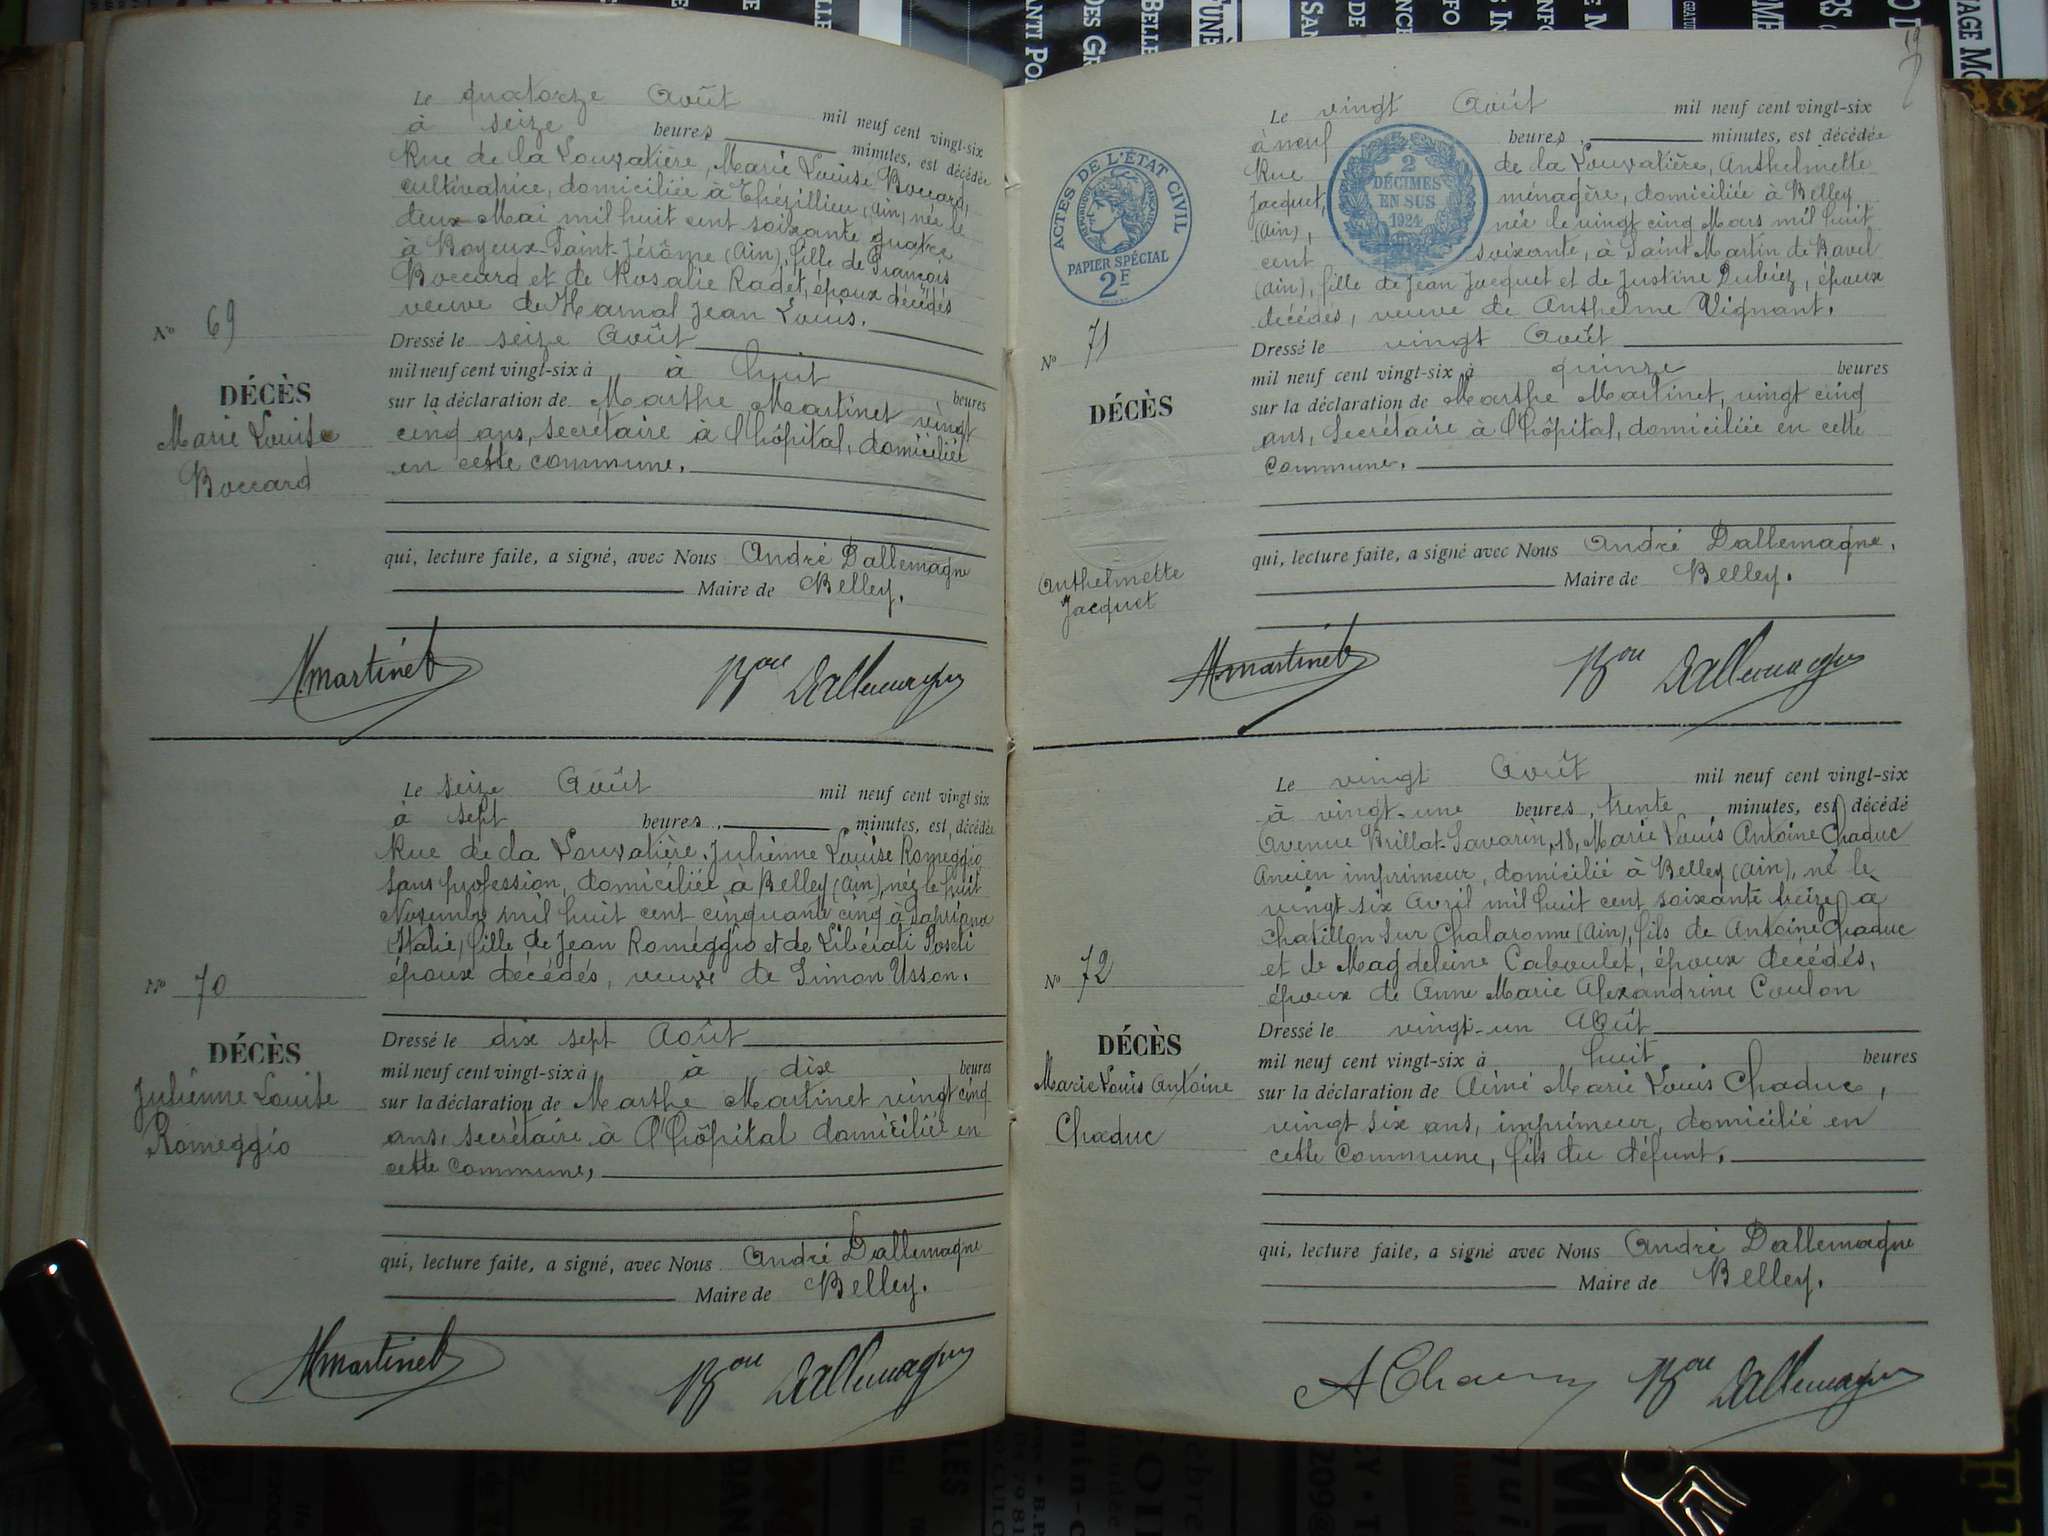 Le quatorze Août mil neuf cent vingt-six
à seize heures minutes, est décédée
Rue de la Louvatière, Marie Louise Boccard,
cultivatrice, domiciliée à Thézillieu, (Ain), née le
deux Mai mil huit cent soixante quatre
à Boyeux-Saint-Jérôme (Ain), fille de François
Boccard et de Rosalie Radet, époux décédés
veuve de Jean Louis.
N° 69
Dressé le seize Août
mil neuf cent vingt-six à à huit heures
DÉCÈS
sur la déclaration de Marthe Martinet vingt
Marie Louise
cinq ans, secrétaire à l'hôpital, domiciliée
Boccard
en cette commune.
qui, lecture faite, a signé, avec Nous André Dallemagne
Maire de Belley.
Mmartinet Bon Dallemagne
Le seize Août mil neuf cent vingt six
à sept heures, minutes, est décédée
Rue de la Louvatière, Julienne Louise Romeggio
sans profession, domiciliée à Belley (Ain), née le huit
Novembre mil huit cent cinquante cinq à
(Italie), fille de Jean Romeggio et de Libérati
époux décédés, veuve de Simon Usson.
N° 70
Dressé le dix sept Août
DÉCÈS
mil neuf cent vingt-six à à dix heures
Julienne Louise
sur la déclaration de Marthe Martinet vingt cinq
Romeggio
ans, secrétaire à l'hôpital domiciliée en
cette commune,
qui, lecture faite, a signé, avec Nous André Dallemagne
Maire de Belley.
Mmartinet Bon Dallemagne
19
Le vingt Août mil neuf cent vingt-six
à neuf heures, minutes, est décédée
Rue de la Louvatière, Anthelmette
Jacquet, ménagère, domiciliée à Belley
(Ain), née le vingt cinq Mars mil huit
cent soixante, à Saint Martin de Bavel
(Ain), fille de Jean Jacquet et de Justine, époux
décédés, veuve de Anthelme Vignant.
ACTES DE L'ÉTAT CIVIL
RÉPUBLIQUE FRANÇAISE
PAPIER SPÉCIAL
2F
2
DÉCIMES
EN SUS
1924
N° 71
Dressé le vingt Août
mil neuf cent vingt-six à quinze heures
DÉCÈS
sur la déclaration de Marthe Martinet, vingt cinq
ans, secrétaire à l'hôpital, domiciliée en cette
commune.
qui, lecture faite, a signé avec Nous André Dallemagne,
Anthelmette
Maire de Belley.
Jacquet
Mmartinet Bon Dallemagne
Le vingt Août mil neuf cent vingt-six
à vingt-une heures, trente minutes, est décédé
Avenue Brillat-Savarin, 18, Marie Louis Antoine Chaduc
Ancien imprimeur, domicilié à Belley (Ain), né le
vingt six Avril mil huit cent soixante treize à
Chatillon sur Chalaronne (Ain), fils de Antoine Chaduc
et de Magdeleine Caboulet, époux décédés,
époux de Anne Marie Alexandrine Coulon
N° 72
Dressé le vingt-un Août
DÉCÈS
mil neuf cent vingt-six à huit heures
Marie Louis Antoine
sur la déclaration de Aimé Marie Louis Chaduc,
Chaduc
vingt six ans, imprimeur, domicilié en
cette commune, fils du défunt.
qui, lecture faite, a signé avec Nous André Dallemagne
Maire de Belley.
A Chaduc Bon Dallemagne